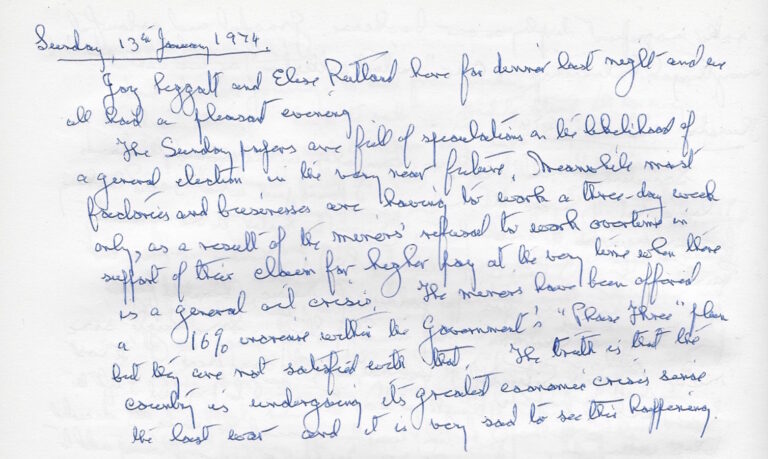 Sunday, 13th January 1974.
Joy Peggatt and Elise Rutland here for dinner last night and we
all had a pleasant evening
The Sunday papers are full of speculations on the likelihood of
a general election in the very near future. Meanwhile most
factories and businesses are having to work a three-day week
only, as a result of the miners' refusal to work overtime in
support of their claim for higher pay at the very time when there
is a general oil crisis. The miners have been offered
a 16% increase within the Government's "Phase Three" plan
but they are not satisfied with that. The truth is that the
country is undergoing its greatest economic crisis since
the last war and it is very sad to see this happening.